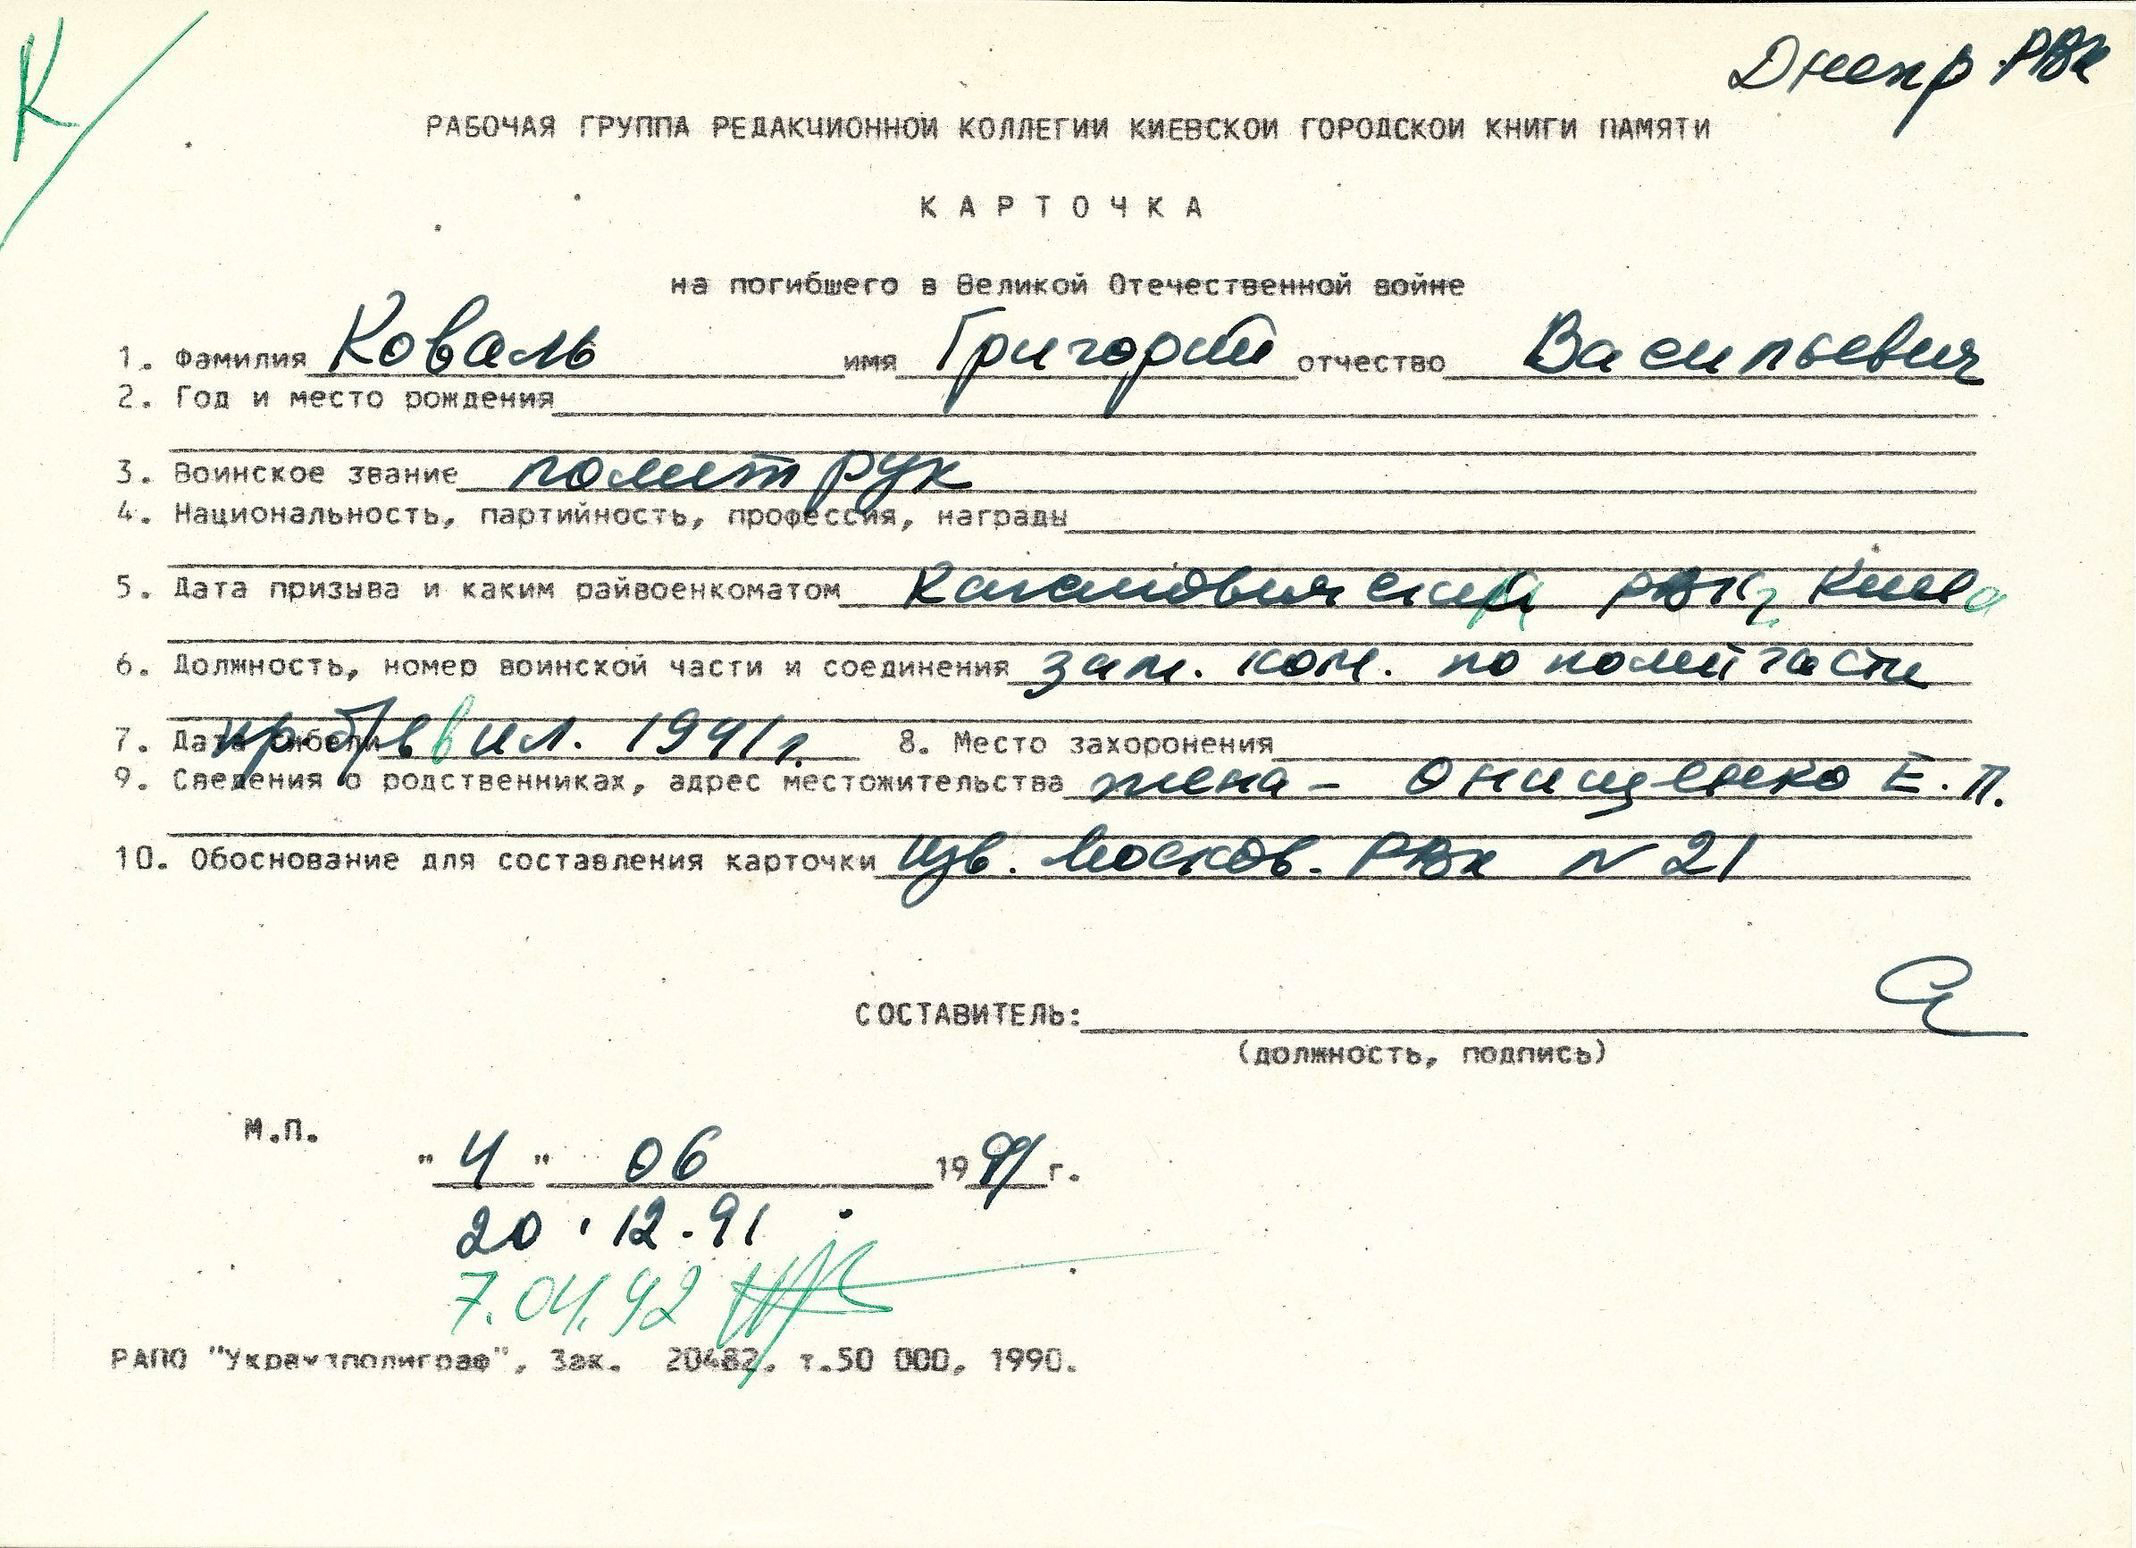 К
Днепр. РВК
РАБОЧАЯ ГРУППА РЕДАКЦИОННОЙ КОЛЛЕГИИ КИЕВСКОЙ ГОРОДСКОЙ КНИГИ ПАМЯТИ
К А Р Т О Ч К А
на погибшего в Великой Отечественной войне
1. Фамилия Коваль имя Григорий отчество Васильевич
2. Год и место рождения
3. Воинское звание политрук
4. Национальность, партийность, профессия, награды
5. Дата призыва и каким райвоенкоматом Кагановический РВК г. Киева
6. Должность, номер воинской части и соединения зам. ком. по политчасти
7. Дата гибели в июл. 1941 г. 8. Место захоронения
9. Сведения о родственниках, адрес местожительства жена - Онищенко Е. П.
10. Обоснование для составления карточки Изв. Москов. РВК N 21
СОСТАВИТЕЛЬ:
(должность, подпись)
М.П.
"4" 06 1991 г.
20.12.91
7.04.92
РАПО "Укрвузполиграф", Зак. 20482, т.50 000, 1990.